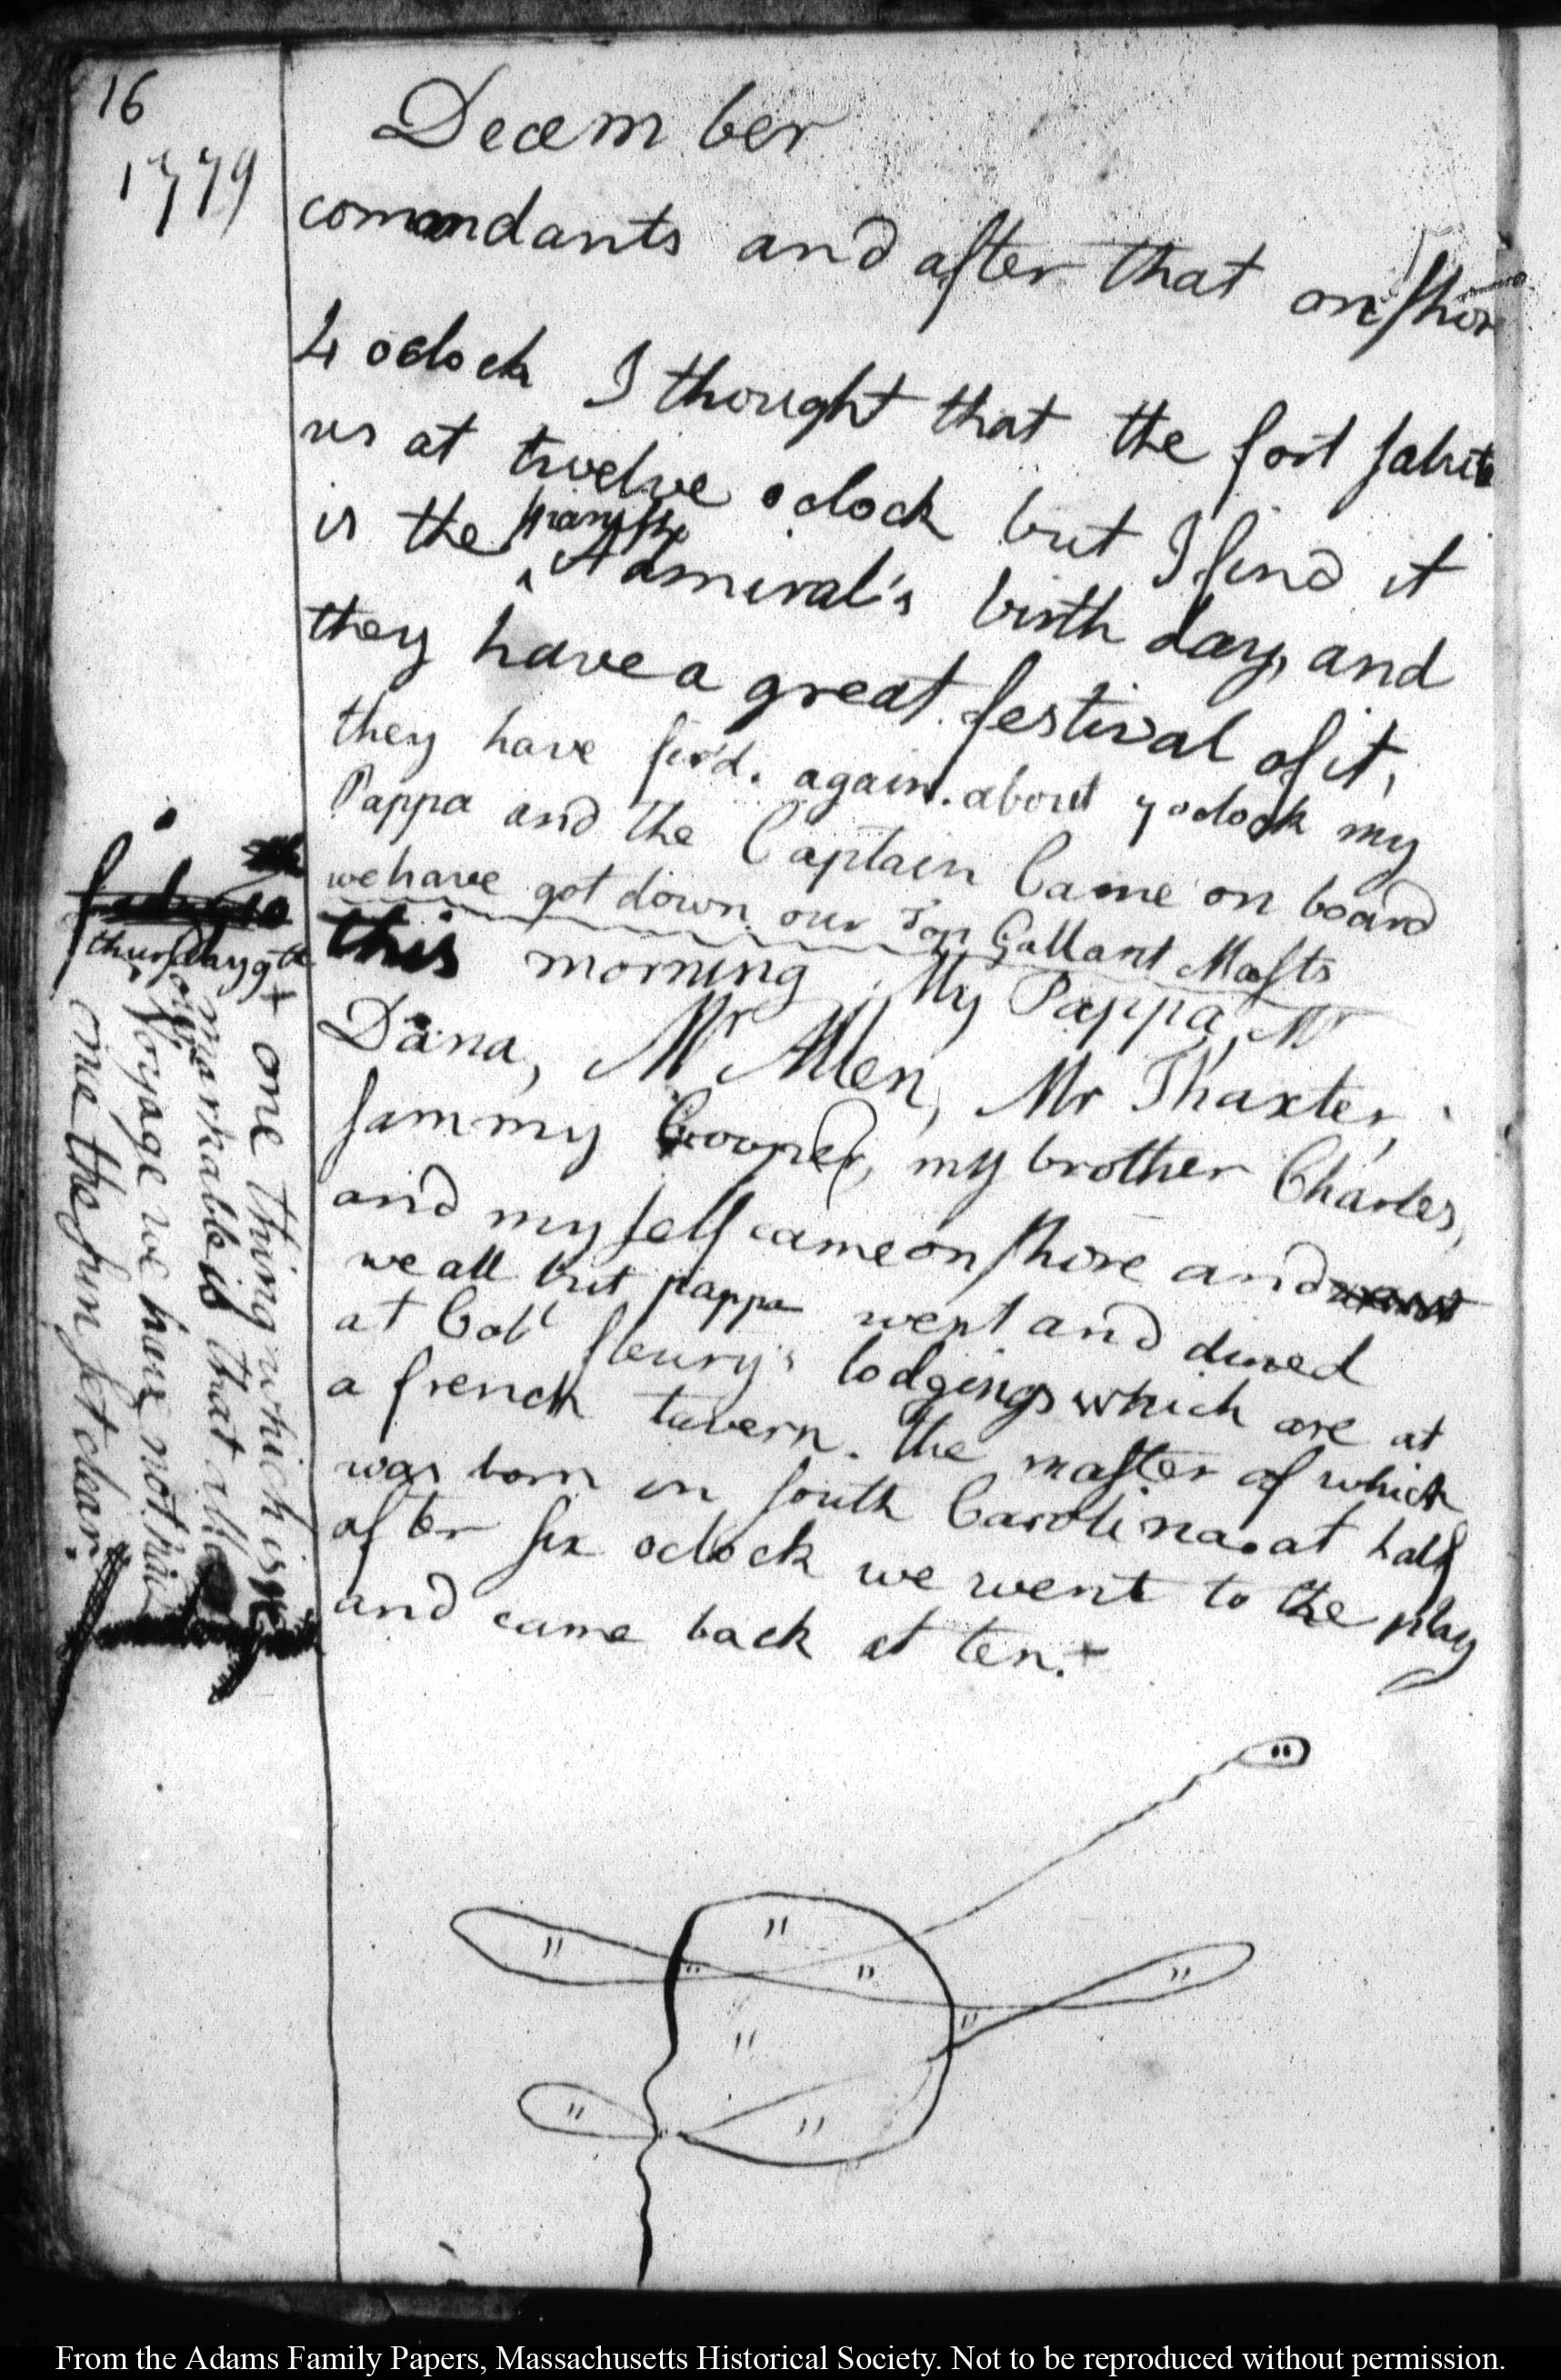 16
1779
December
commandants and after that on shore
4 oclock I thought that the fort salute
us at twelve oclock but I find it
is the spanish
Admiral's birth day, and
they have a great festival of it,
they have fir'd. again. about 7 oclock my
Pappa and the Captain Came on board
we have got down our Top Gallant Masts
thursday 9th
this morning My Pappa, Mr
Dana, Mr Allen, Mr Thaxter,
Sammy Cooper, my brother Charles,
and my self came on shore and went
we all but pappa went and dined
at Coll fleury's lodgings which are at
a french tavern. the master of which
was born in south Carolina. at half
after six oclock we went to the play
and came back at ten. +
+ one thing which is re
markable is that all
our Voyage we have not had
one the sun set clear.
From the Adams Family Papers, Massachusetts Historical Society. Not to be reproduced without permission.